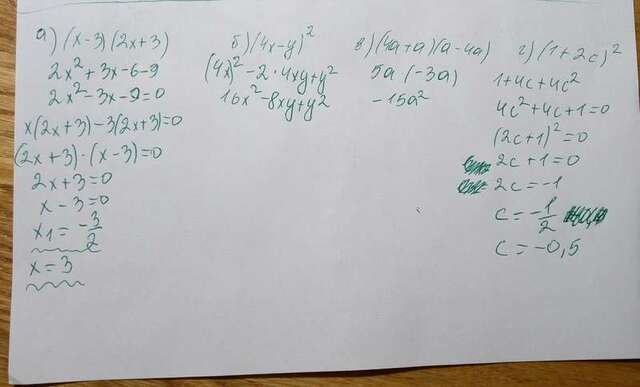 а) (x-3)(2x+3)
2x²+3x-6-9
2x²-3x-9=0
x(2x+3)-3(2x+3)=0
(2x+3)·(x-3)=0
2x+3=0
x-3=0
x₁=-3/2
x=3
б) (4x-y)²
(4x)²-2·4xy+y²
16x²-8xy+y2
в) (4a+a)(a-4a)
5a(-3a)
-15a²
г) (1+2c)²
1+4c+4c²
4c²+4c+1=0
(2c+1)²=0
2c+1=0
2c=-1
c=-1/2
c=-0,5